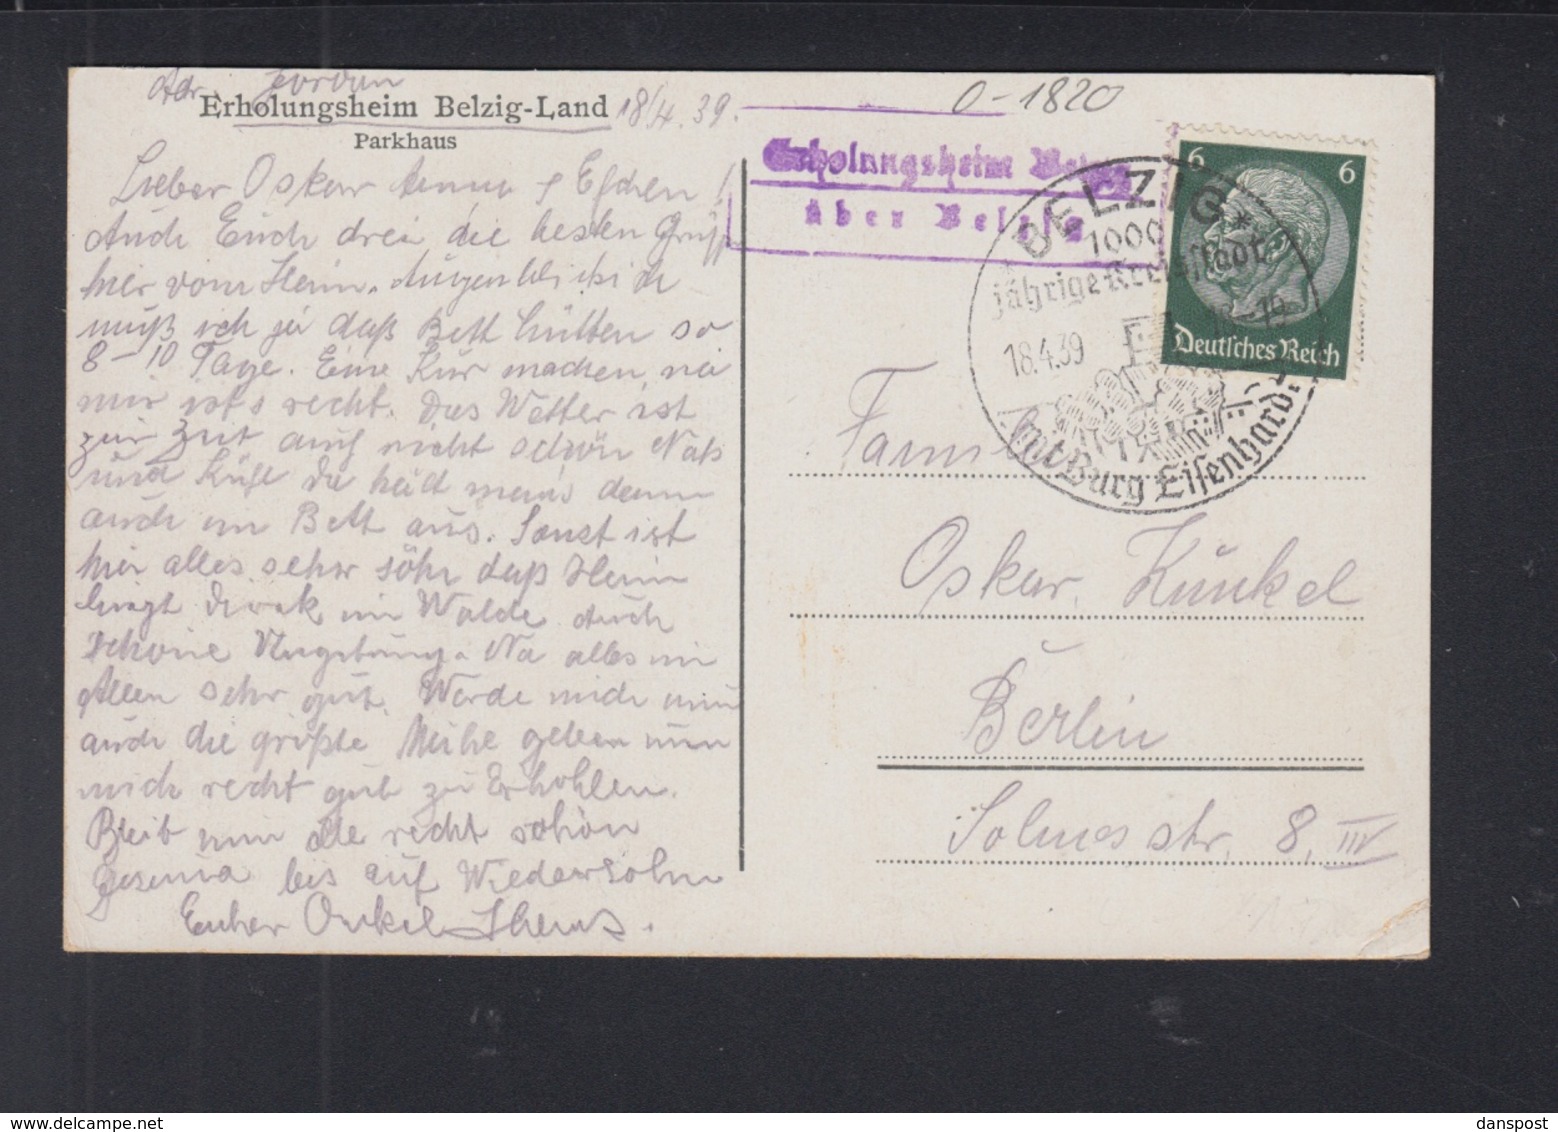 Adr. Jordan
Erholungsheim Belzig-Land
18/4.39.
Parkhaus
Lieber Oskar Anna & Elschen!
Auch Euch drei die besten Grüße
hier vom Heim. Augenblicklich
muß ich ja daß Bett hütten so
8-10 Tage. Eine Kur machen, na
mir ist's recht. Das Wetter ist
zur Zeit auch nicht schön Naß
und Kühl Da hält man's denn
auch im Bett aus. Sonst ist
hier alles sehr söhn daß Heim
liegt direk im Walde. Auch
schöne Umgebung. Na alles in
Allen sehr gut. Werde mich nun
auch die größte Mühe geben nun
mich recht gut zu Erhohlen.
Bleib nun alle recht schön
Gesund bis auf Wiedersehn
Euher Onkel
0-1820
Erholungsheim Belzig
über Belzig
BELZIG
1000
jährige Kreisstadt
18.4.39
mit Burg Eisenhardt
6 6
Deutsches Reich
Familie
Oskar Kunkel
Berlin
Solmsstr. 8. III
danspost